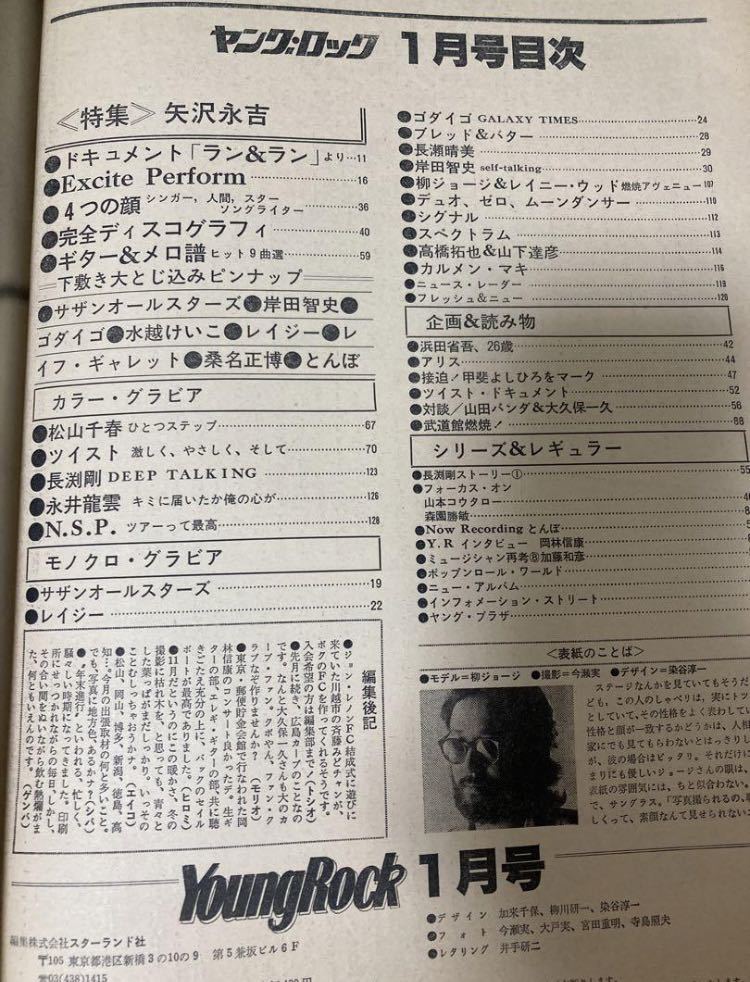 ヤング・ロック 1月号目次
〈特集〉矢沢永吉
●ドキュメント「ラン&ラン」より…11
●Excite Perform…16
●4つの顔 シンガー,人間,スター ソングライター…36
●完全ディスコグラフィ…40
●ギター&メロ譜 ヒット9曲選…59
下敷き大とじ込みピンナップ
●サザンオールスターズ●岸田智史●
ゴダイゴ●水越けいこ●レイジー●レ
イフ・ギャレット●桑名正博●とんぼ
カラー・グラビア
●松山千春 ひとつステップ…67
●ツイスト 激しく、やさしく、そして…70
●長渕剛 DEEP TALKING…123
●永井龍雲 キミに届いたか俺の心が…126
●N.S.P. ツアーって最高…128
モノクロ・グラビア
●サザンオールスターズ…19
●レイジー…22
●ゴダイゴ GALAXY TIMES…24
●ブレッド&バター…28
●長瀬晴美…29
●岸田智史 self-talking…30
●柳ジョージ&レイニー・ウッド 燃焼アヴェニュー…107
●デュオ、ゼロ、ムーンダンサー…110
●シグナル…112
●スペクトラム…113
●高橋拓也&山下達彦…114
●カルメン・マキ…116
●ニュース・レーダー…119
●フレッシュ&ニュー…120
企画&読み物
●浜田省吾、26歳…42
●アリス…44
●接迫!甲斐よしひろをマーク…47
●ツイスト・ドキュメント…52
●対談/山田パンダ&大久保一久…56
●武道館燃焼!…88
シリーズ&レギュラー
●長渕剛ストーリー①…55
●フォーカス・オン
山本コウタロー
森園勝敏
●Now Recording とんぼ
●Y.R インタビュー 岡林信康
●ミュージシャン再考⑧加藤和彦
●ポップンロール・ワールド
●ニュー・アルバム
●インフォメーション・ストリート
●ヤング・プラザ
編集後記
●ジョン・レノンFC結成式に遊びに
来ていた川越市の斉藤みどチャンが、
ボクのFCを作ってくれるそうです。
入会希望の方は編集部まで!(トシオ)
●先月に続き、広島カープのことなの
です。なんと大久保一久さんも大のカ
ープ・ファン。クボやん、ファン・ク
ラブなぞ作りませんか?(モリオ)
●東京・郵便貯金会館で行なわれた岡
林信康のコンサート良かったデ。生ギ
ターの部、エレキ・ギターの部、共に聴
きごたえ充分の上に、バックのセイル
ボートが最高でありました。(ヒロミ)
●11月だというのにこの暖かさ、冬の
撮影に枯れ木を、と思っても、青々と
した葉っぱがまだしっかり、いっその
ことむしっちゃおうかナ。(エイコ)
●松山、岡山、博多、新潟、徳島、高
知…。今月の出張取材の何と多いこと。
でも、写真に地方色、あるかナ?(シバ)
●〝年末進行〟といわれる、忙しく、
騒々しい時期になってきました。印刷
所にせっつかれながらの毎日。しかし、
その合い間をぬいながら飲む熱燗がま
た、何ともいえんのです。(ゲンバ)
〈表紙のことば〉
●モデル=柳ジョージ ●撮影=今瀬実 ●デザイン=染谷淳一
ステージなんかを見ていてもそうだ
ども、この人のしゃべりは、実にトツ
としていて、その性格をよく表わしてい
性格と顔が一致するかどうかは、人相
家にでも見てもらわないとはっきりし
が、彼の場合はピッタリ。それだけに
まりにも優しいジョージさんの眼は、
表紙の雰囲気には、ちと似合わない。
で、サングラス。「写真撮られるの、
しくって、素顔なんて見せられない
YoungRock 1月号
●デザイン 加来千保、柳川研一、染谷淳一
●フォト 今瀬実、大戸実、宮田重明、寺島照夫
●レタリング 井手研二
編集株式会社スターランド社
〒105 東京都港区新橋3の10の9 第5兼坂ビル6F
☎03(438)1415